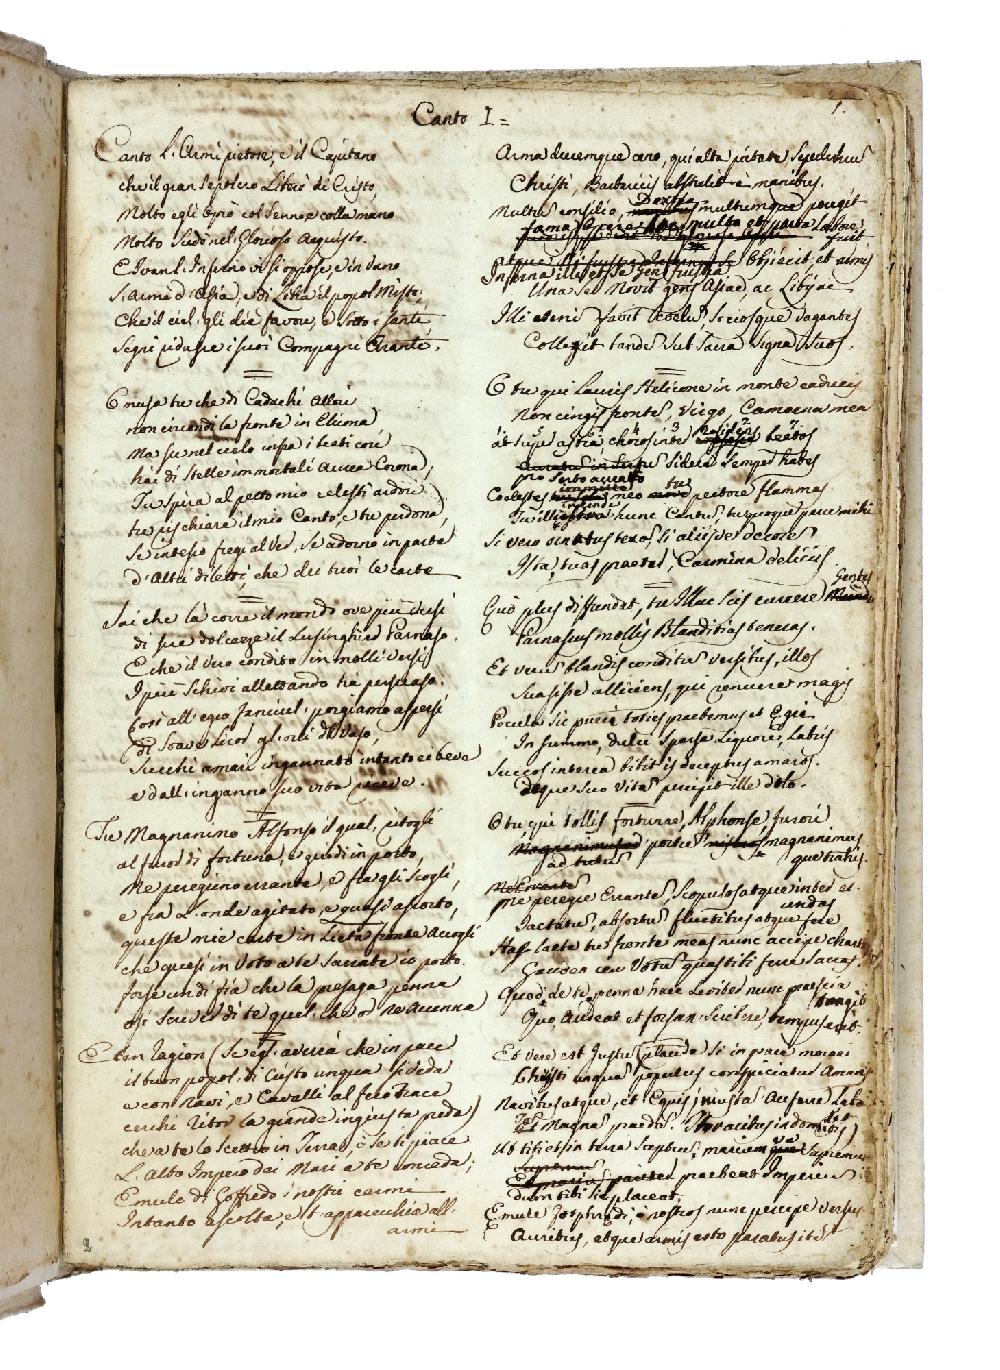 Canto I =
1.
Canto l'Armi pietose, e il Capitano
che il gran Sepolcro Liberò di Cristo,
Molto egli oprò col Senno, e colla mano
Molto Soffrì nel Glorioso Acquisto.
E in van l'Inferno vi si oppose, e in vano
S'armò d'Asia, e di Libia il popol Misto;
Che il ciel gli diè favore, e Sotto i Santi
Segni ridusse i suoi Compagni Erranti.
O musa tu che di Caduchi Allori
non circondi la fronte in Elicona,
Ma su nel cielo infra i beati cori
hai di Stelle immortali Aurea Corona,
Tu Spira al petto mio celesti ardori
tu rischiara il mio Canto, e tu perdona,
Se intesso fregi al Ver, Se adorno in parte
d'Altri diletti, che dei tuoi le carte
Sai che là corre il mondo ove più versi
di sue dolcezze il Lusinghier Parnaso.
E che il Vero condito in molli versi
I più Schivi allettando ha persuaso.
Così all'egro fanciul porgiamo aspersi
di Soave licor gli orli del Vaso,
Succhi amari ingannato intanto ei beve
e dall'inganno suo vita riceve.
Tu Magnanimo Alfonso il qual ritogli
al furor di fortuna, e guidi in porto,
Me peregrino errante, e fra gli Scogli,
e fra l'onde agitato, e quasi assorto,
queste mie carte in Lieta fronte Accogli
che quasi in Voto a te Sacrate io porto.
forse un dì fia che la presaga penna
osi Scriver di te quel che or ne Accenna
È ben ragion (Se egli averrà che in pace
il buon popol di Cristo unqua si veda
e con Navi, e Cavalli al fero Trace
cerchi ritor la grande ingiusta preda)
che a te lo scettro in Terra, o se ti piace
L'Alto Impero dei Mari a te conceda;
Emulo di Goffredo i nostri carmi
Intanto ascolta, e t'apparecchia all'
armi
Arma ducemque cano, qui alta pietate, Sepulchrum
Christi, Barbaricis abstulit è manibus.
Dextra
Multum consilio, multumque peregit
fuit
Objecit, et armis
Inferna illi et Se gens frustra
Una Se Movit gens Asiae, ac Libyae
Illi at enim favit Coelum, Sociosque vagantes
Collegit tandem Sub Sacra Signa Suos.
O tu qui Lauris Helicone in monte caducis
Non cingis frontem, Virgo, Camoena mea
At super astra choros inter beatos
Sidera Semper habes
pro Serto aurato
Coelestes meo tu pectore flammas
Tu illi hunc Cantum, tu quoque parce mihi
Si vero ornatus texo, Si aliisve decorem
Ista, tuas praeter, Carmina deliciis
Gentes
Quò plus diffundat, tu Illuc Scis currere
Parnasus mollis Blanditias teneras.
Et verum blandis conditum versibus, illos
Suasisse alliciens, qui renuere magis
Pocula Sic pueris toties praebemus et Egris
In Summo, dulci Sparsa Liquore, Labris
Succos interea bibit is deceptus amaros.
deque Suo Vitam percipit ille dolo.
O tu, qui tollis fortunae, Alphonse, furori
portum magnanimus
ad tutum
que trahis.
me peregre Errantem, Scopulos atque inter et
undas
Jactatum, absortum fluctibus atque fere
Has laeta tu fronte meas nunc accipe chartas
Gaudeo ceu Votum quas tibi ferre Sacras.
Quod de te penna haec Leviter nunc praescia
tangit
Quo, Audeat et forsan Scribere, tempus erit.
Et vere est Justum (placida Si in pace morari
Christi unquam populus conspiciatur Amans
Navibus atque, et Equis injusta Auferre
Magnam praedam)
Ut tibi et in terra Sceptrum, marium Supremum
praebeat Imperium
dum tibi Sic placeat.
Emule Gothfredi, nostros nunc percipe Versus
Auribus, atque armis esto paratus
2